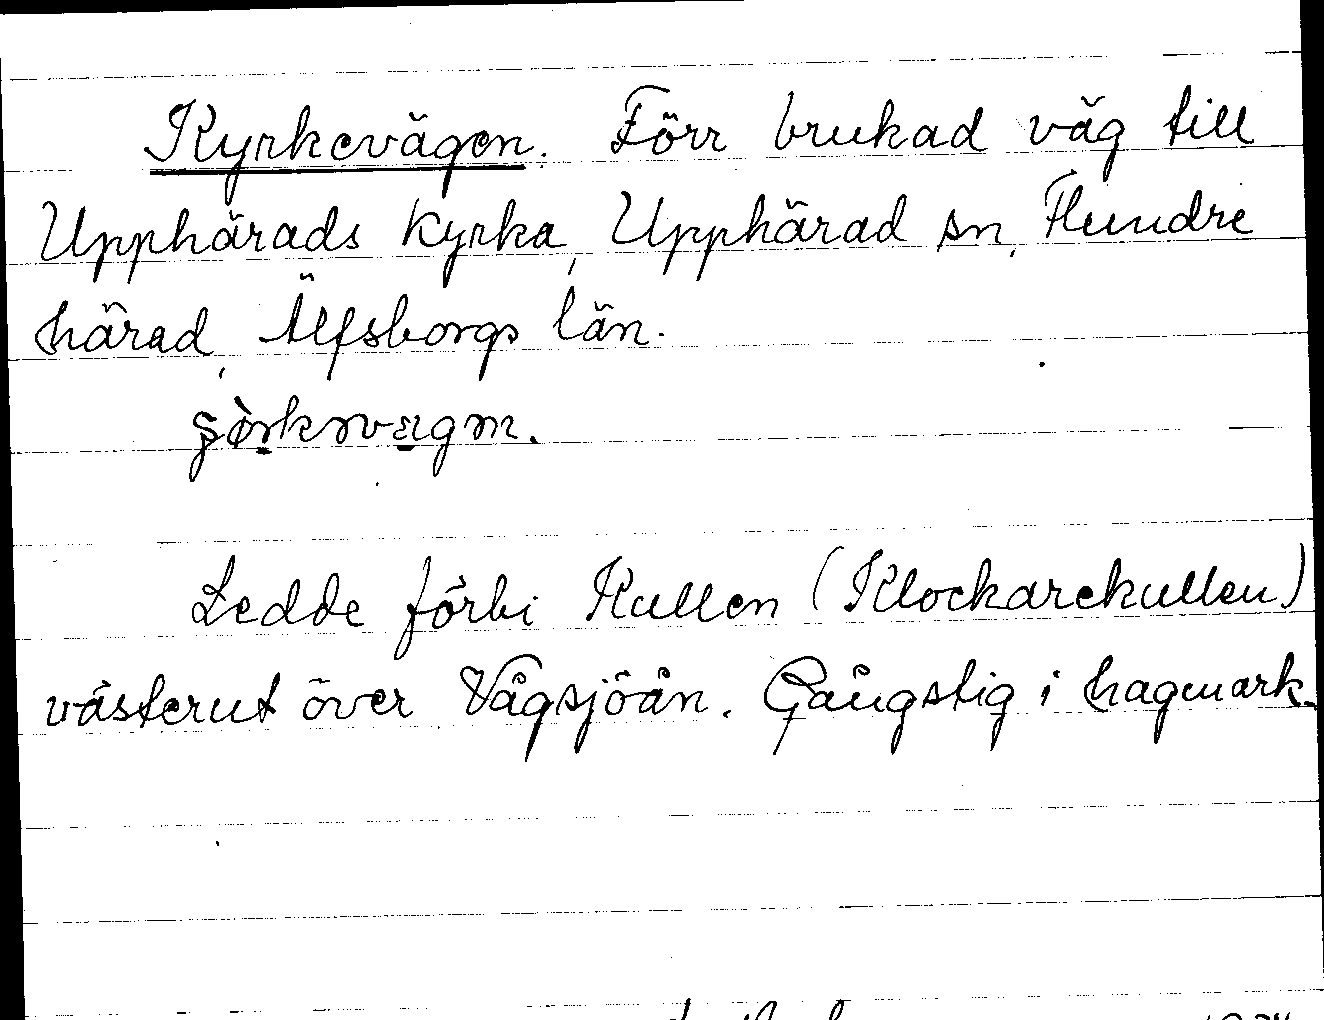 Kyrkevägen. Förr brukad väg till
Upphärads kyrka, Upphärad sn, Flundre
härad, Älfsborgs län.
Ledde förbi Kullen (Klockarekullen)
västerut över Vågsjöån. Gångstig i hagmark.